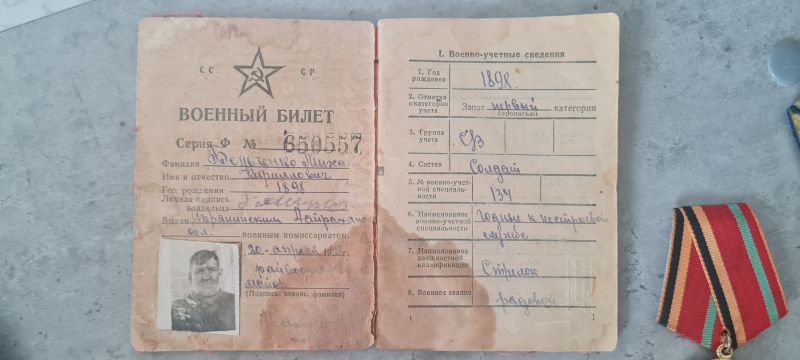 СС СР
ВОЕННЫЙ БИЛЕТ
Серия Ф № 650557
Фамилия
Имя и отчество Кириллович
Год рождения 1898
Личная подпись
владельца
Выдан
обл. военным комиссариатом.
20 апреля
майор
(Подпись: звание, фамилия)
I. Военно-учетные сведения
1. Год рождения 1898.
2. Отметка о категории учета Запас первый категории
(прописью)
3. Группа учета
4. Состав Солдат
5. № военно-учетной специальности 134
6. Наименование военно-учетной специальности Годные к нестроевой службе
7. Наименование должностной квалификации Стрелок
8. Военное звание рядовой
1
1